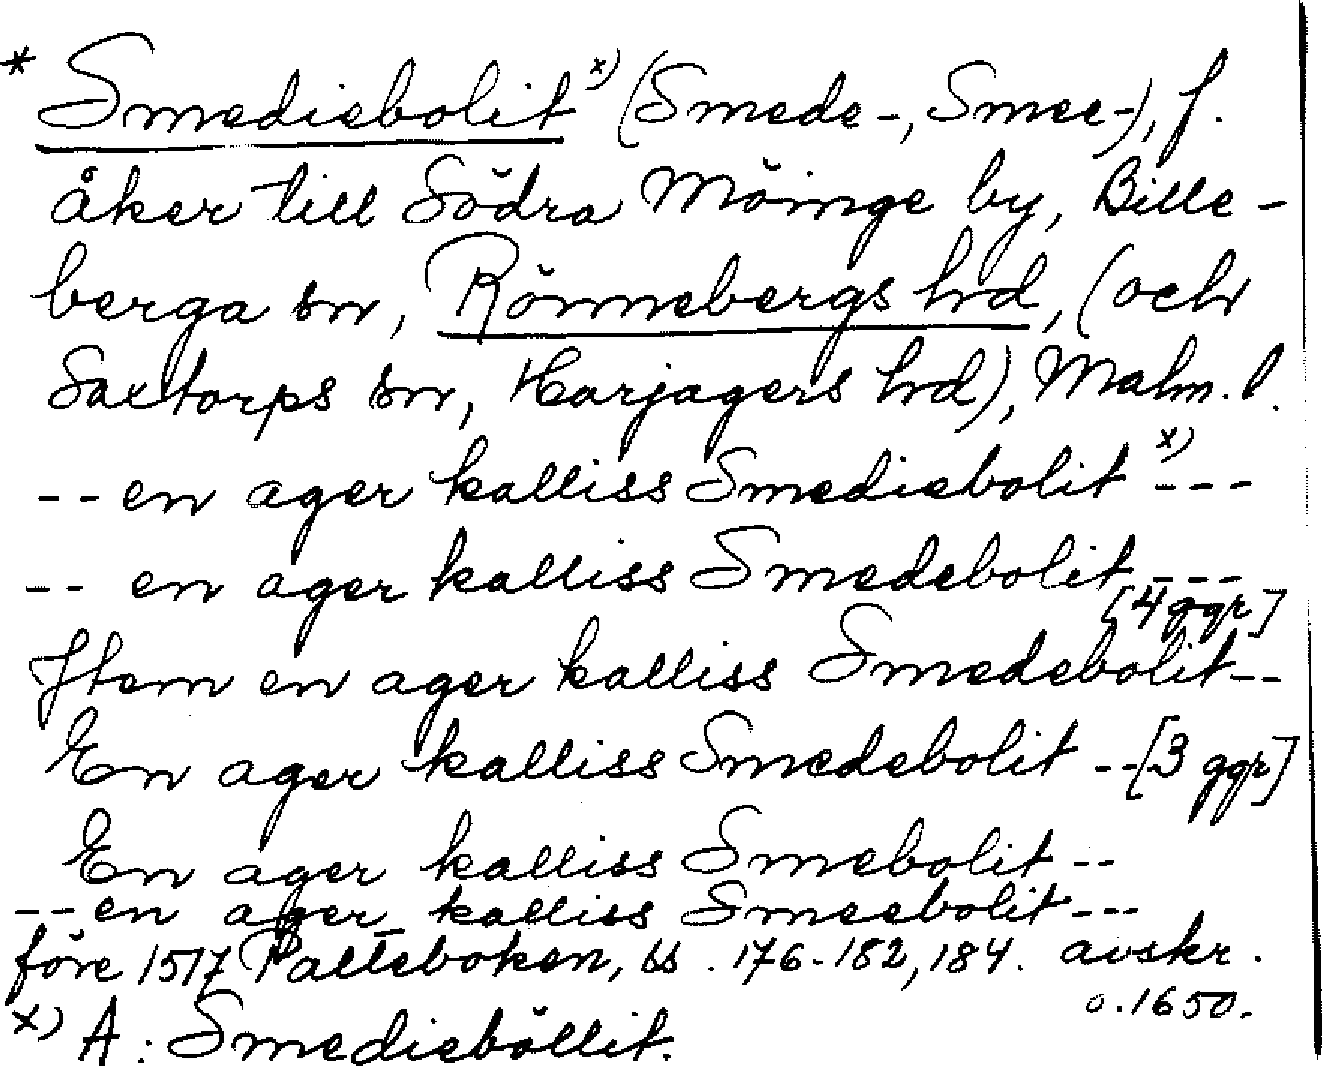 * Smediebolit x) (Smede-, Smee-), f.
åker till Södra Möinge by, Bille-
berga sn, Rönnebergs hrd, (och
Saxtorps sn, Harjagers hrd), Malm. l.
-- en ager kalliss Smediebolit x) ---
-- en ager kalliss Smedebolit ---
[4 ggr]
Jtem en ager kalliss Smedebolit--
En ager kalliss Smedebolit --[3 ggr]
En ager kalliss Smebolit--
--en ager kalliss Smeebolit---
före 1517 Palteboken, ss. 176-182, 184. avskr.
o. 1650.
x) A: Smedieböllit.